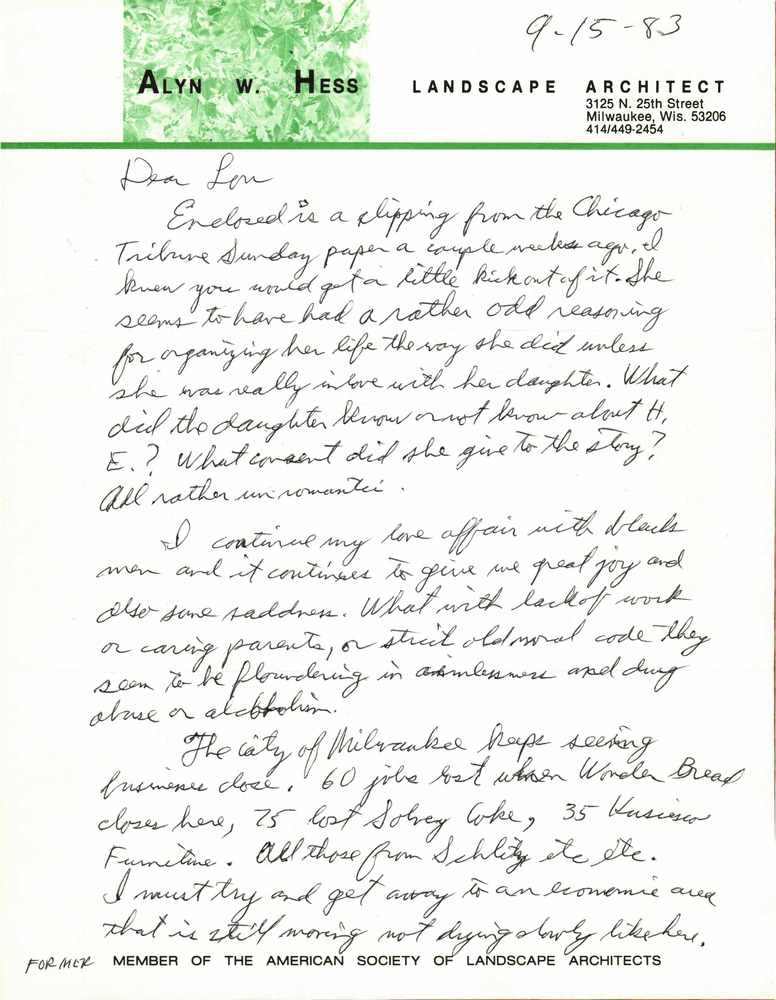 9-15-83
ALYN W. HESS LANDSCAPE ARCHITECT
3125 N. 25th Street
Milwaukee, Wis. 53206
414/449-2454
Dear Lou
Enclosed is a clipping from the Chicago
Tribune Sunday paper a couple weeks ago. I
knew you would get a little kick out of it. She
seems to have had a rather odd reasoning
for organizing her life the way she did unless
she was really in love with her daughter. What
did the daughter know or not know about H.
E.? What consent did she give to the story?
All rather unromantic.
I continue my love affair with black
men and it continues to give me great joy and
also some saddness. What with lack of work
or caring parents, or strict old moral code they
seem to be floundering in aimlessness and drug
abuse or alcoholism.
The city of Milwaukee keeps seeing
businesses close. 60 jobs lost when Wonder Bread
closes here, 75 lost Solvey Coke, 35
Furniture. All those from Schlitz etc etc.
I must try and get away to an economic area
that is still moving not dying slowly like here.
FORMER MEMBER OF THE AMERICAN SOCIETY OF LANDSCAPE ARCHITECTS